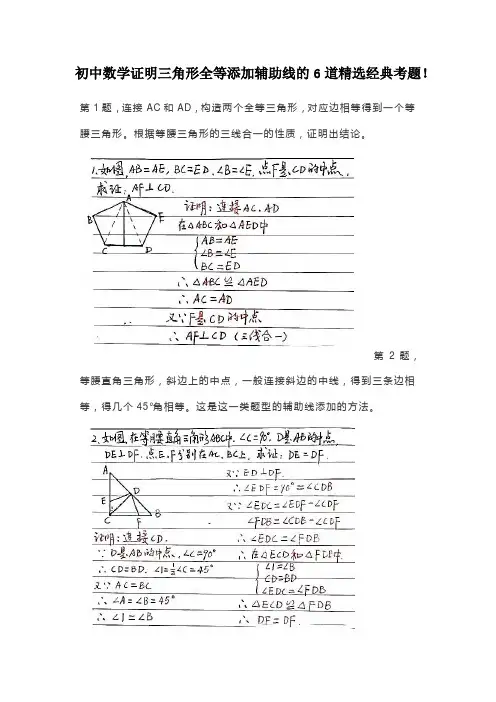 初中数学证明三角形全等添加辅助线的6道精选经典考题！
第1题，连接AC和AD，构造两个全等三角形，对应边相等得到一个等
腰三角形。根据等腰三角形的三线合一的性质，证明出结论。
1.如图，AB=AE，BC=ED，∠B=∠E，点F是CD的中点，
求证：AF⊥CD.
A
B
E
C
D
证明：连接AC、AD
在△ABC和△AED中
AB=AE
∠B=∠E
BC=ED
∴△ABC≌△AED
∴AC=AD
又∵F是CD的中点
∴AF⊥CD（三线合一）
第2题，
等腰直角三角形，斜边上的中点，一般连接斜边的中线，得到三条边相
等，得几个45°角相等。这是这一类题型的辅助线添加的方法。
2.如图，在等腰直角三角形ABC中，∠C=90°，D是AB的中点，
DE⊥DF，点E、F分别在AC、BC上，求证：DE=DF.
A
D
E
B
C
F
证明：连接CD.
∵D是AB的中点，∠C=90°
∴CD=BD，∠1=½∠C=45°
又∵AC=BC
∴∠A=∠B=45°
∴∠1=∠B
又∵ED⊥DF.
∴∠EDF=90°=∠CDB
又∵∠EDC=∠EDF-∠CDF
∠FDB=∠CDB-∠CDF
∴∠EDC=∠FDB
∴在△ECD和△FDB中
∠1=∠B
CD=BD
∠EDC=∠FDB
∴△ECD≌△FDB
∴DF=DF.